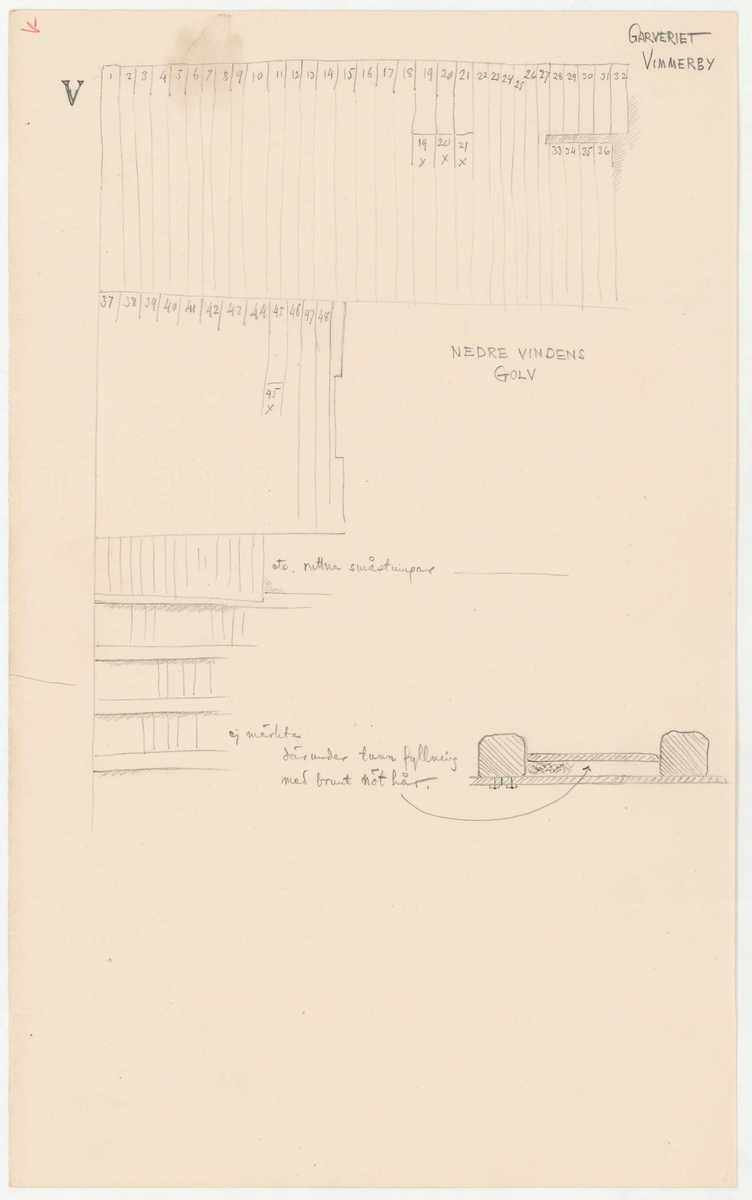 GARVERIET
VIMMERBY
V
1 2 3 4 5 6 7 8 9 10 11 12 13 14 15 16 17 18 19 20 21 22 23 24 25 26 27 28 29 30 31 32
19 20 21
x x x
33 34 35 36
37 38 39 40 41 42 43 44 45 46 47 48
45
x
NEDRE VINDENS
GOLV
etc. ruttna småstumpar
ej märkta
därunder tunn fyllning
med brunt nöthår.